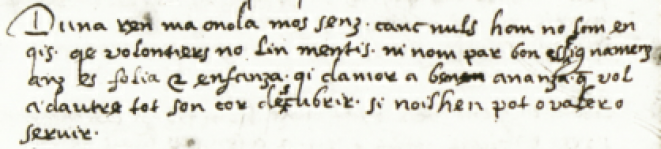 D una ren ma onola mos senz. canc nuls hom no som en
qis. qe volontiers no lin mentis. ni nom par bon essignamenz
anz es folia & enfanza. qi damor a benananza. q vol
a dautre tot son cor descubrir. si noilhen pot o valer o
servir.